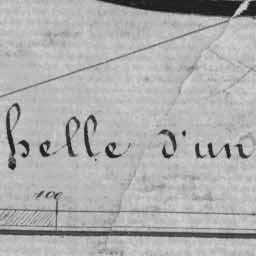 helle d'un
100